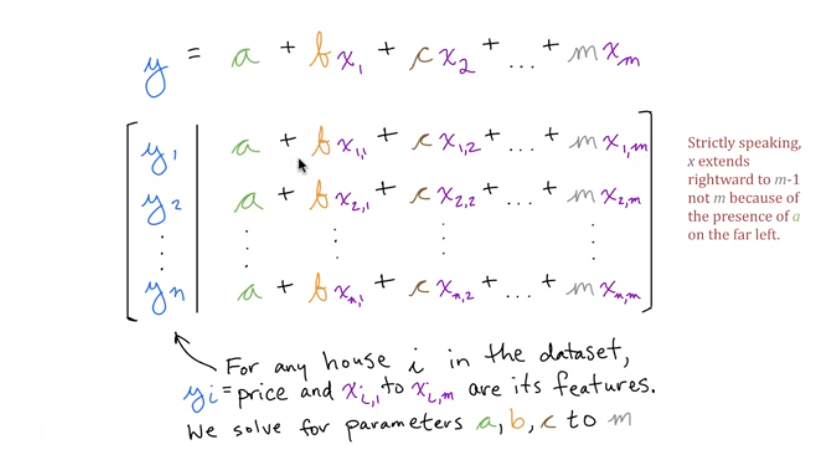 y = a + bx₁ + cx₂ + ... + mxₘ
y₁ a + bx₁,₁ + cx₁,₂ + ... + mx₁,ₘ
y₂ a + bx₂,₁ + cx₂,₂ + ... + mx₂,ₘ
⋮ ⋮ ⋮ ⋮ ⋮
yₙ a + bxₙ,₁ + cxₙ,₂ + ... + mxₙ,ₘ
Strictly speaking,
x extends
rightward to m-1
not m because of
the presence of a
on the far left.
For any house i in the dataset,
yᵢ = price and xᵢ,₁ to xᵢ,ₘ are its features.
We solve for parameters a, b, c to m